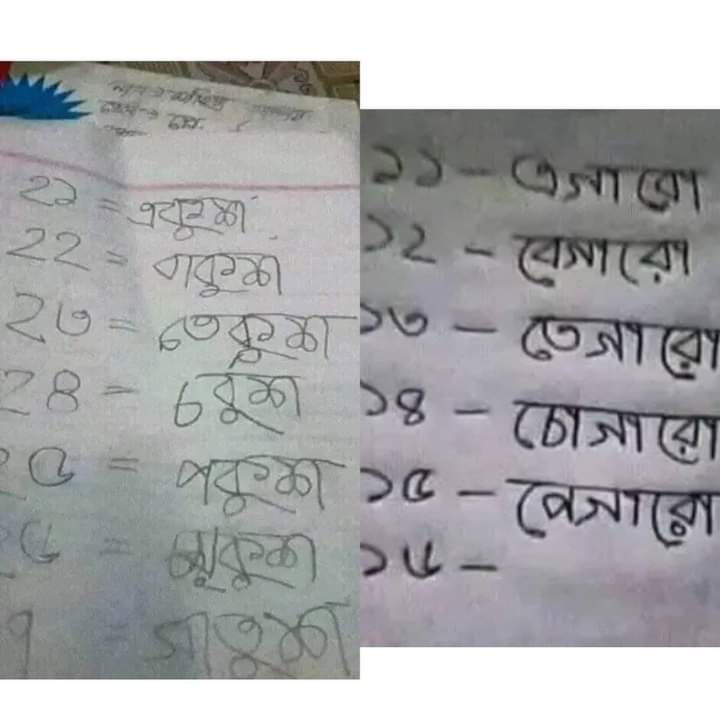 ২১ = একুশ
২২ = বাকুশ
২৩ = তেকুশ
২৪ = চকুশ
২৫ = পকুশ
২৬ = ছয়কুশ
৭ = সাতুশ
১১ - এগারো
১২ - বেগারো
১৩ - তেগারো
১৪ - চোগারো
১৫ - পেগারো
১৬ -